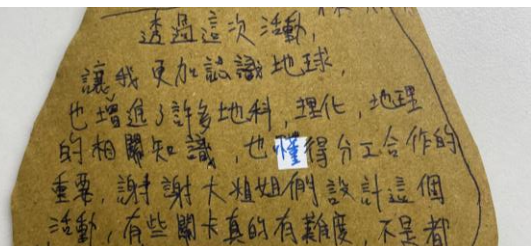 透過這次活動,
讓我更加設識地球,
也增進了許多地科,理化,地理
的相關知識,也懂得分工合作的
重要,謝謝大姐姐們設計這個
活動,有些關卡真的有難度,不是都